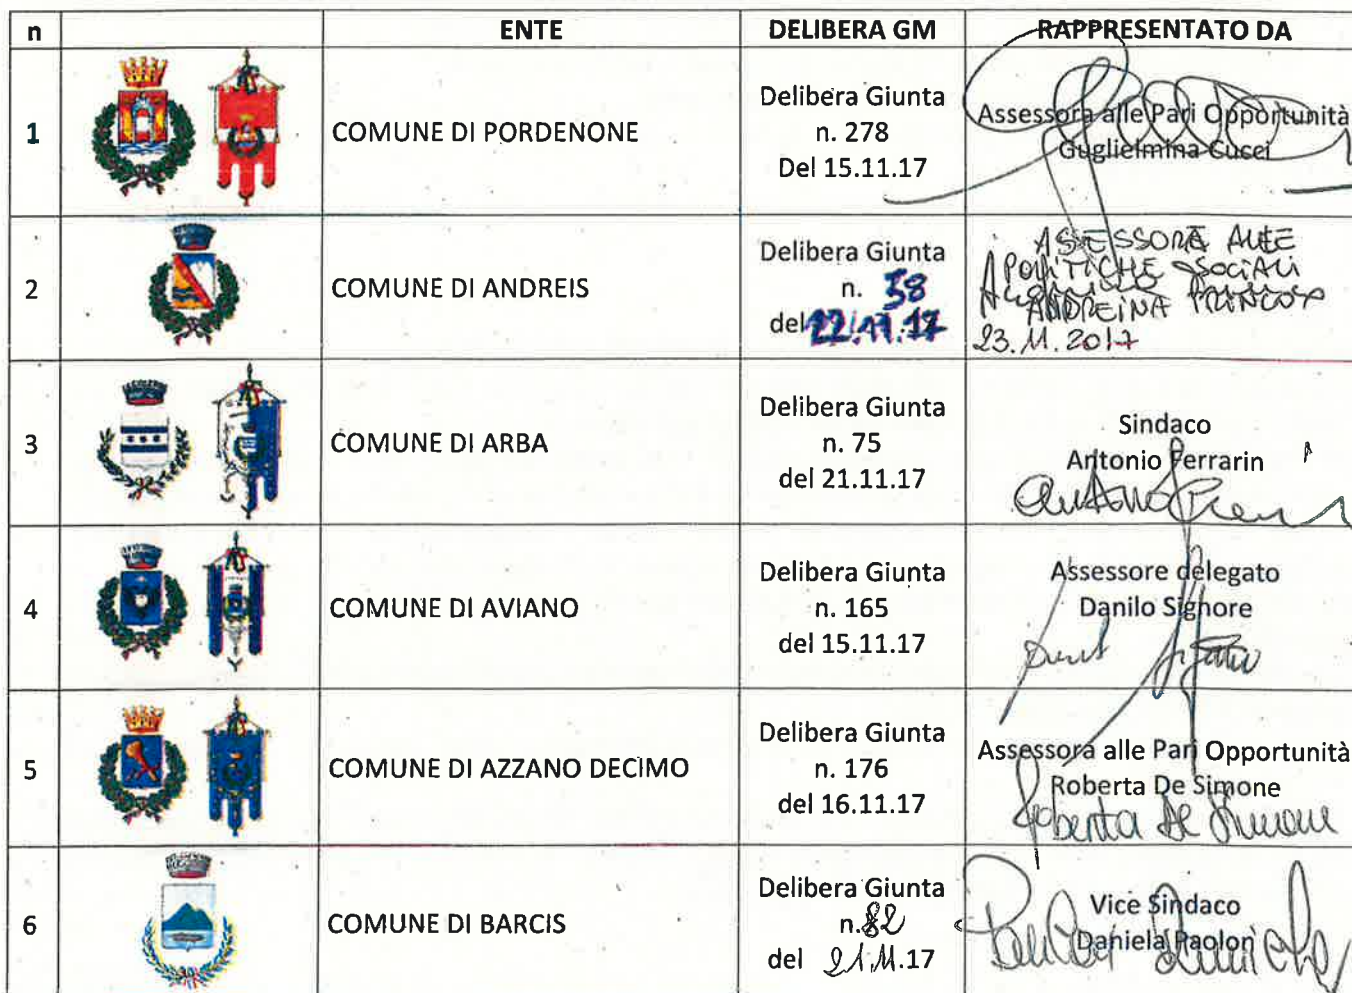 n ENTE DELIBERA GM RAPPRESENTATO DA
1 COMUNE DI PORDENONE
Delibera Giunta
n. 278
Del 15.11.17
Assessora alle Pari Opportunità
Guglielmina Cucci
2 COMUNE DI ANDREIS
Delibera Giunta
n. 58
del 22.11.17
ASSESSORE ALLE
POLITICHE SOCIALI
ANDREINA
23.11.2017
3 COMUNE DI ARBA
Delibera Giunta
n. 75
del 21.11.17
Sindaco
Antonio Ferrarin
4 COMUNE DI AVIANO
Delibera Giunta
n. 165
del 15.11.17
Assessore delegato
Danilo Signore
5 COMUNE DI AZZANO DECIMO
Delibera Giunta
n. 176
del 16.11.17
Assessora alle Pari Opportunità
Roberta De Simone
Roberta De Simone
6 COMUNE DI BARCIS
Delibera Giunta
n. 82
del 21.11.17
Vice Sindaco
Daniela Paolon